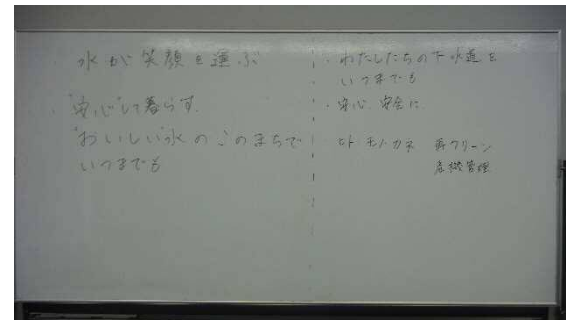 水が笑顔を運ぶ
"安心"して暮らす
"おいしい"水のこのまちで
いつまでも
・わたしたちの下水道を
いつまでも
・安心、安全に
ヒト モノ カネ 再クリーン
危機管理